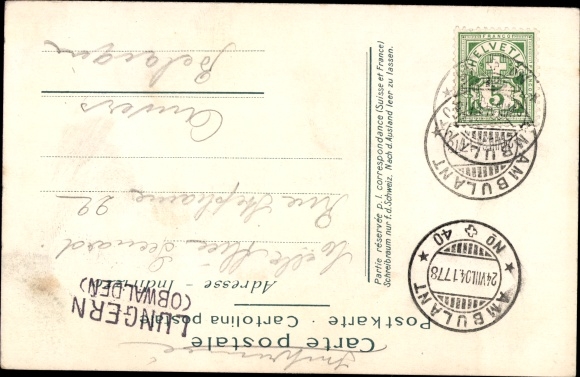 Imprimé
Carte postale
Postkarte · Cartolina postale
LUNGERN
(OBWALDEN)
Adresse - Indirizzo
Rue Stéphanie 22
Anvers
Belgique
Partie réservée p. l. correspondance (Suisse et France)
Schreibraum nur f. d. Schweiz. Nach d. Ausland leer zu lassen.
FRANCO
HELVETIA
5
AMBULANT
AMBULANT
No 40
24.VII.04.1778